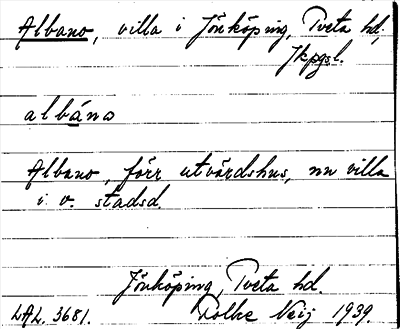 Albano, villa i Jönköping, Tveta hd,
Jkpgsl.
albánω
Albano, förr utvärdshus, nu villa
i v. stadsd.
Jönköping, Tveta hd.
LAL. 3681. Folke Neij 1939.